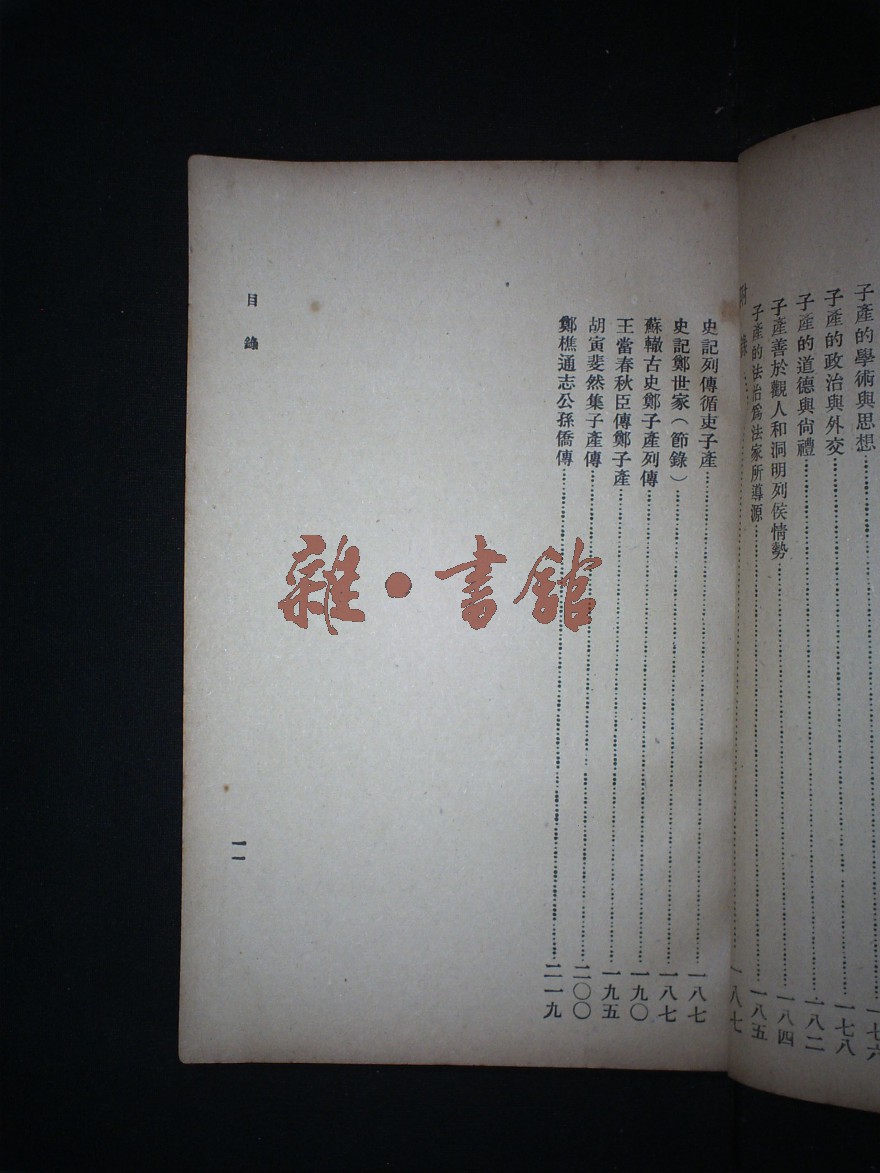 子產的學術與思想……一七六
子產的政治與外交……一七八
子產的道德與尙禮……一八二
子產善於觀人和洞明列侯情勢……一八四
子產的法治爲法家所導源……一八五
附錄……一八七
史記列傳循吏子產……一八七
史記鄭世家（節錄）……一八七
蘇轍古史鄭子產列傳……一九〇
王當春秋臣傳鄭子產……一九五
胡寅斐然集子產傳……二〇〇
鄭樵通志公孫僑傳……二一九
目錄
二
雜·書館